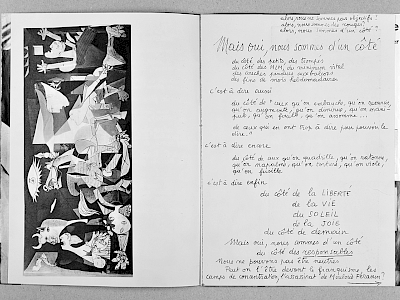 alors, nous ne sommes pas objectifs ?
alors, nous sommes des rouges ?
alors, nous sommes d'un côté ?
Mais oui, nous sommes d'un côté
du côté des petits, des
du côté des HLM, du minimum vital
des
des fins de mois hebdomadaires
c'est à dire aussi
du côté de "ceux qu'on embauche, qu'on
qu'on augmente, qu'on diminue, qu'on mani-
pule, qu'on fouille, qu'on assomme...
de ceux qui en ont trop à dire pour pouvoir le
dire."
c'est à dire encore
du côté de ceux qu'on quadrille, qu'on ratonne,
qu'on napalme, qu'on torture, qu'on viole,
qu'on fusille
c'est à dire enfin
du côté de la LIBERTÉ
de la VIE
du SOLEIL
de la JOIE
du côté de demain
Mais oui, nous sommes d'un côté
du côté des responsables
Nous ne pouvons pas être neutres
Peut on l'être devant le franquisme, les
camps de concentration, l'assassinat de Mouloud Feraoun ?